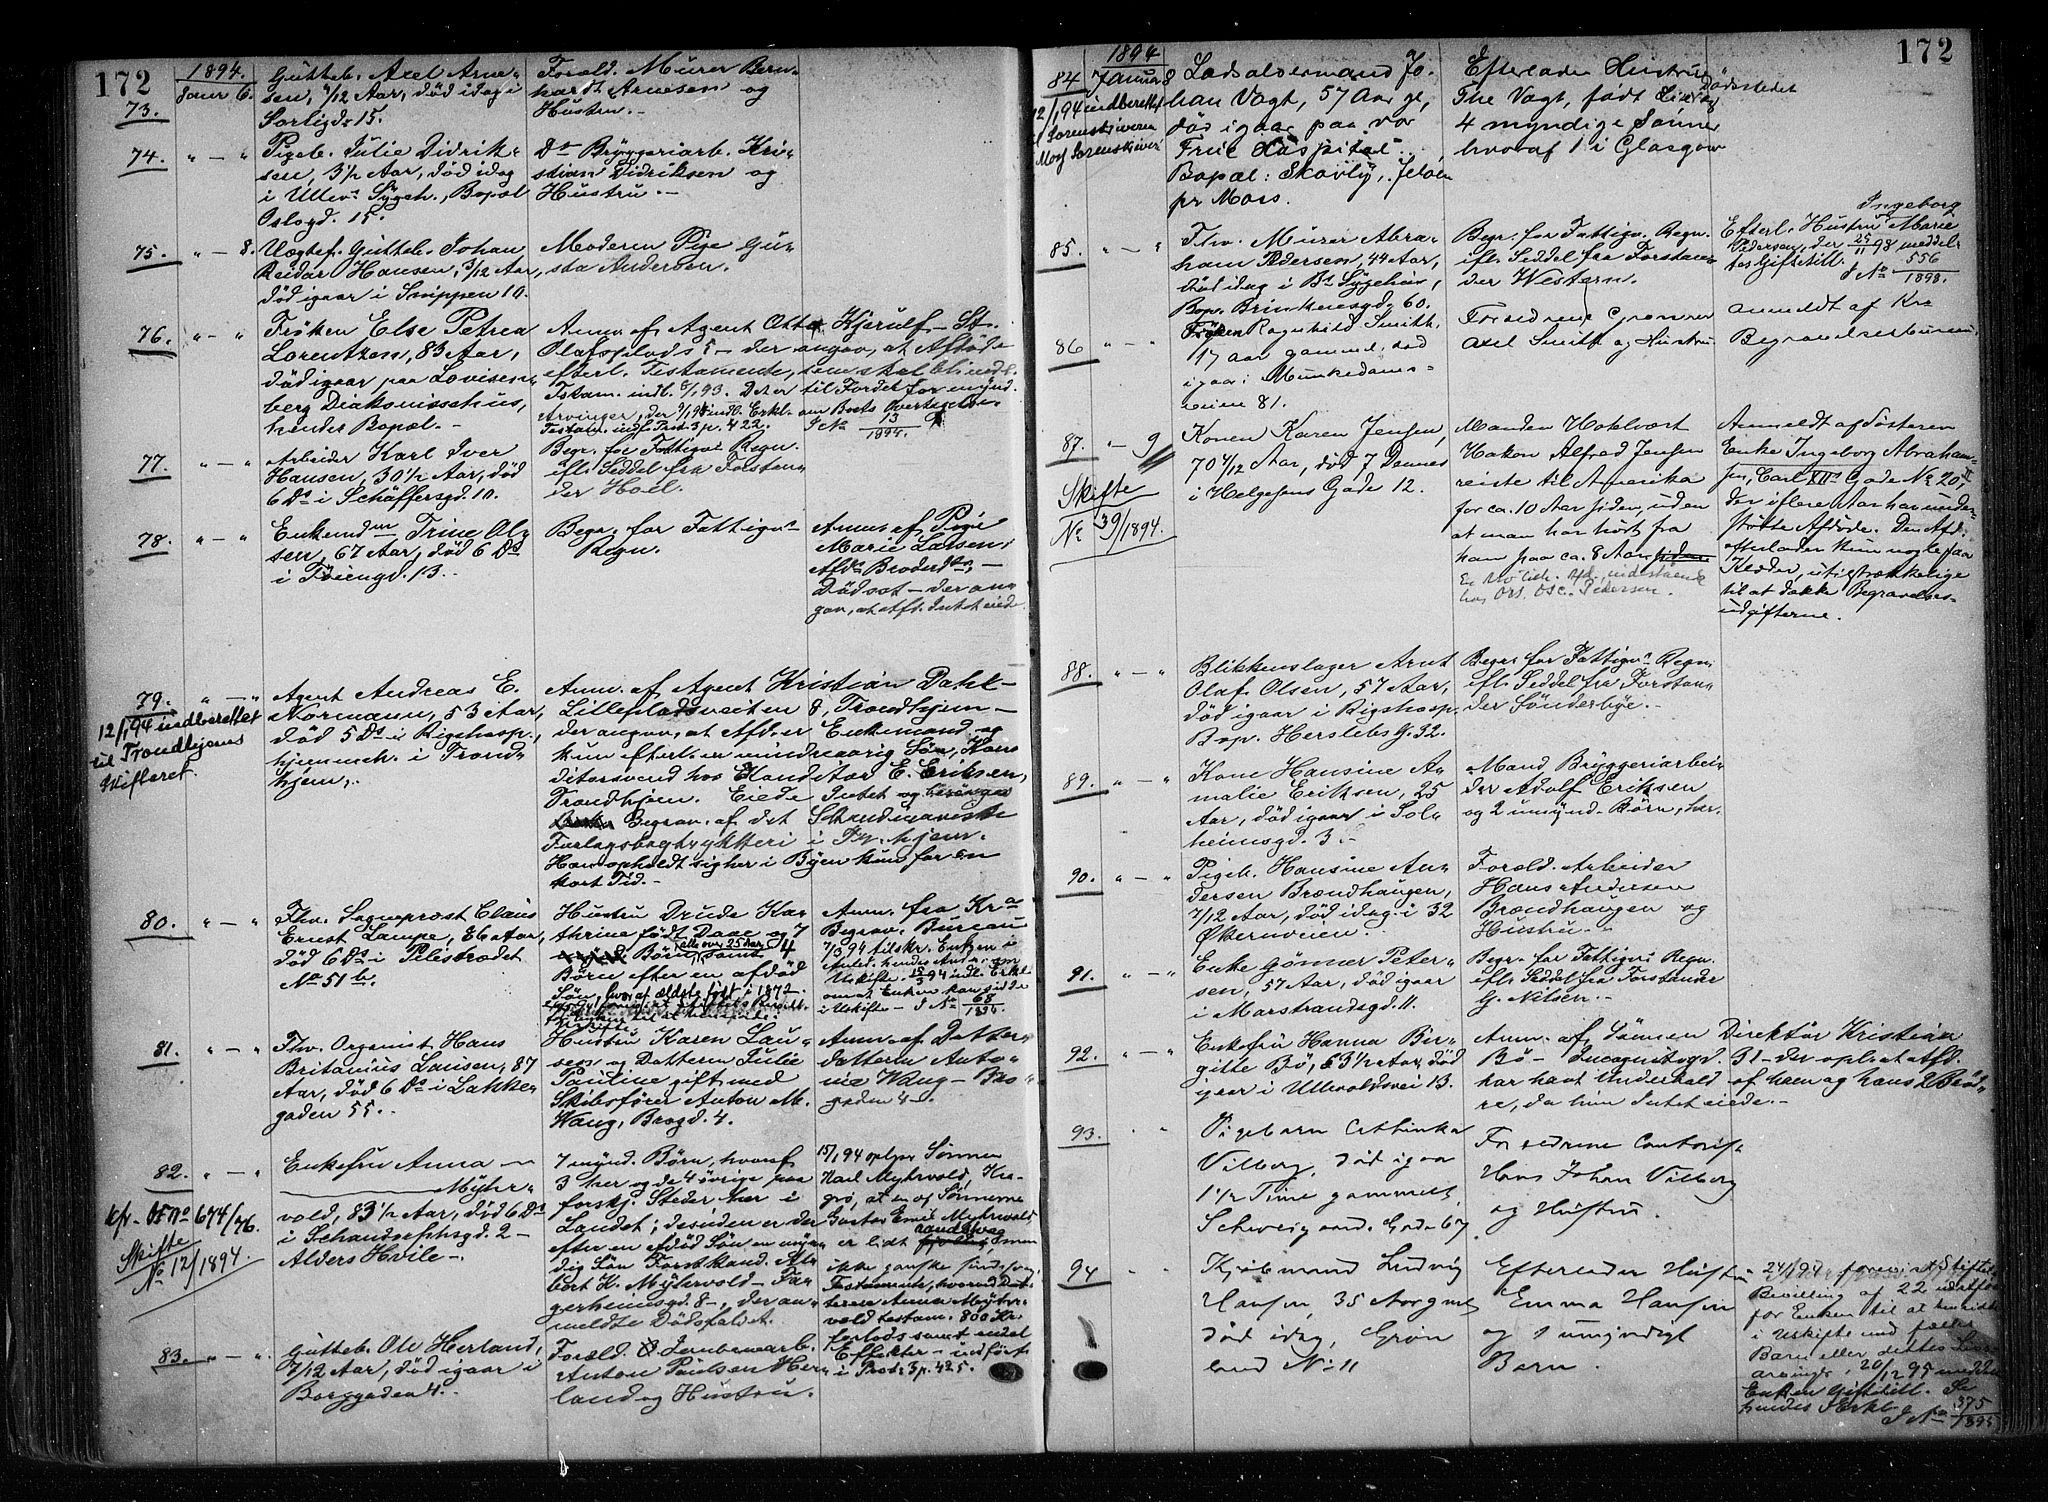 172
1894.
73.
Janr 6.
Gutteb. Axel Arne-
sen, 4/12 Aar, død idag i
Sorligd. 15.
Foræld. Murer Bern-
hardt Arnesen og
Hustru.-
74.
" - "
Pigeb. Julie Didrik-
sen, 3 1/2 Aar, død idag
i Ullev. Sygeh., Bopæl
Oslogd. 15.
Do Bryggeriarb. Kri-
stian Didriksen og
Hustru.-
75.
" - 8.
Uægtef. Gutteb. Johan
Reidar Hansen, 3/12 Aar,
død igaar i Snippen 10.
Moderen Pige Gu-
sta Andersen.
76.
" - "
Frøken Else Petrea
Lorentzen, 83 Aar,
død igaar paa Lovisen-
berg Diakonissehus,
hendes Bopæl.-
Anm. af Agent Otto Kjerulf - St.
Olafsplads 5 - der angav, at Afdøde
efterl. Testamente, som skal blive indl.
Arvinger, der
Testam. indf. Prot. 3 p. 422.
J No 13/1894.
77.
" - "
Arbeider Karl Iver
Hansen, 30 1/2 Aar, død
6 Ds i Schäffersgd. 10.
Begr. for Fattigv. Regn.
ifl. Seddel fra Forstan-
der Hoel.
78.
" - "
Enkemdm Trine Ol-
sen, 67 Aar, død 6 Ds
i Tøiengd. 13.
Begr. for Fattigvs
Regn.
Anm. af Pige
Marie Larsen,
Afds Broderdtr,
der an-
gav, at Afd. Intet eied.
79.
12/1 94 indberettet
til Trondhjems
Skifteret.
" - "
Agent Andreas E.
Normann, 53 Aar,
død 5 Ds i Rigshosp.,
hjemmeh. i Trond-
hjem.
Anm. af Agent Kristian Dahl -
Lilleplads 8, Trondhjem -
der angav, at Afd. er Enkemand og
kun efterl. en mindreaarig Søn, Kon-
ditorsvend hos Konditor E. Eriksen,
Trondhjem. Eiede Intet og
Begrav. af det Skandinaviske
Forlagsbogtrykkeri i Tr.hjem.
Han opholdt sig her i Byen kun for en
kort Tid.-
80.
" - "
Fhv. Sogneprest Claus
Ernst Lampe, 86 Aar,
død 6 Ds i Pilestrædet
No 51 b.
Hustru Drude Ka-
thrine født Daae og 7
Børn alle over 25 Aar, samt 4
Børn efter en afdød
Søn, hvoraf ældste født i 1872.
Anm. fra Kra
Begrav. Bureau
7/3 94 tilskr. Enken i
i Uskifte - J No 68/1894.
81.
" - "
Fhv. Organist Hans
Britanius Lausen, 87
Aar, død 6 Ds i Lakke-
gaden 55.-
Hustru Karen Lau-
sen og Datteren Julie
Pauline gift med
Skibsfører Anton M.
Wang, Brogd. 4.
Anm. af Datter-
datteren Anto-
nie Wang - Bro-
gaden 4 -
82.
kfr. No 674/76.
Skifte
No 12/1894.
" - "
Enkefru Anna
Myhr-
vold, 83 1/2 Aar, død 6 Ds
i Schandorphsgd. 2 -
Alders Hvile -
7 mynd. Børn, hvoraf
3 her og de 4 øvrige paa
forskj. Steder her i
Landet; desuden er der
efter en afdød Søn en myn-
dig Søn Forstkand. Al-
bert K. Myhrvold - Fa-
gerheimsgd. 8 -, der an-
meldte Dødsfaldet.
15/1 94 oplyser Sønnen
Karl Myhrvold, Kra-
gerø, at en af Sønnerne
Gustav Emil Myhrvold
er lidt aandssvag
ikke ganske sindssyg,
Testamente, hvorved Dat-
teren Anna Myhr-
vold testam. 800 Kr.
forlods samt endel
Effekter - indført
i Prot. 3 p. 425.
83.
" - "
Gutteb. Ole Herland,
7/12 Aar, død igaar i
Borggaden 4.-
Foræld. Jernbanearb.
Anton Paulsen Her-
land og Hustru.
172
1894
84
12/1 94 indberettet
til Sorenskriveren
Moss Sorenskriveri
Januar 8
Lodsoldermand Jo-
han Vogt, 57 Aar gl,
død igaar paa Vor
Frue Hospital.
Bopæl: Skovly, Jeløen
pr Moss.
Efterlader Hustru
Thea Vogt, født
4 myndige Sønner
hvoraf 1 i Glasgow
Dødsstedet
85.
" - "
Fhv. Murer Abra-
ham Pedersen, 44 Aar,
død idag i Bs Sygehus,
Bop. Brinkensgd. 60.
Begr. for Fattigv. Regn.
ifl. Seddel fra Forstan-
der Western.
Ingeborg
Efterl. Hustru Marie
Pedersen, der 25/11 98 meddel-
tes Giftetill.
J No 556/1898.
86
" - "
Frøken Ragnhild Smith,
17 aar gammel, død
igaar i Munkedams-
veien 81.
Forældrene Grosserer
Axel Smith og Hustru
anmeldt af Kra
Begravelsesbureau.
87.
" - 9
Skifte
No 39/1894.
Konen Karen Jensen,
70 4/12 Aar, død 7 Dennes
i Helgesens Gade 12.
Manden
Hakon Alfred Jensen
reiste til Amerika
for ca. 10 Aar siden, uden
at man har hørt fra
ham paa ca. 8 Aar
hos Ors. Osc. Pedersen.
Anmeldt af Søsteren
Enke Ingeborg Abraham-
sen, Carl XII's Gade No 20,
der i flere Aar har under-
støttet Afdøde. Den Afd.
efterlader kun nogle faa
Klæder, utilstrækkelige
til at dække Begravelses-
udgifterne.
88.
" - "
Blikkenslager Arnt
Olaf Olsen, 57 Aar,
død igaar i Rigshosp.
Bop. Herslebs G. 32.
Begr. for Fattigvs Regn.
ifl. Seddel fra Forstan-
der Sønderbye.-
89.
" - "
Kone Hansine A-
malie Eriksen, 25
Aar, død igaar i Sol-
heimsgd. 3.-
Mand Bryggeriarbei-
der Adolf Eriksen
og 2 umynd. Børn, her.
90.
" - "
Pigeb. Hansine An-
dersen Brændhaugen,
7/12 Aar, død idag i 32
Økernveien.
Foræld. Arbeider
Hans Andersen
Brændhaugen og
Hustru.-
91.
" - "
Enke Gønner Peter-
sen, 57 Aar, død igaar
i Marstrandsgd. 11.
Begr. for Fattigv. Regn.
ifl. Seddel fra Forstander
G. Nilsen.-
92.
" - "
Enkefru Hanna Bir-
gitte Bø, 63 1/2 Aar, død
igaar i Ullevoldsvei 13.
Anm. af Sønnen Direktør Kristian
Bø - Incognitogd. 31 - der opl. at Afd.
har havt Underhold af ham og hans 2 Brød-
re, da hun Intet eiede.-
93.
" "
Pigebarn Cathinka
Vilberg, død igaar
1 1/2 Time gammelt,
Schweigaards Gade 67
Forældrene Contorist
Hans Johan Vilberg
og Hustru.
94
" "
Kjøbmand Ludvig
Hansen, 35 Aar gml
død idag, Grøn-
land No 11
Efterlader Hustru
Emma Hansen
og 1 umyndigt
Barn.
24/1 94 forevist Skifte
Bevilling af 22 udstedt
for Enken til at hensidde
i Uskifte med fælles
Barn eller dettes Liv-
arvinger, 20/12 95
Enken Giftetill. Se
hendes Erkl.
J No 375/1895